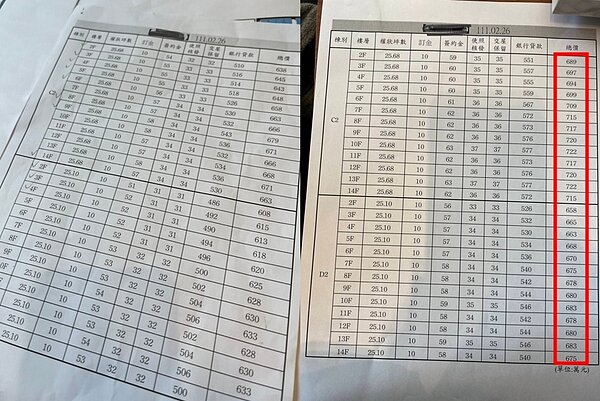 111.02.26
棟別 樓層 權狀坪數 訂金 簽約金 使照核發 交屋保留 銀行貸款 總價
2F 25.68 10 54 32 32 510 638
3F 25.68 10 516 645
4F 25.68 10 514 643
5F 25.68 10 518 648
6F 25.68 10 526 658
C2 7F 25.68 10 532
8F 25.68 10 532 666
9F 25.68 10 543
10F 25.68 10 536 671
11F 25.68 10 532 666
12F 25.68 10 534 668
13F 25.68 10 536 671
14F 25.68 10 530 663
2F 25.10 10 51 31 31 486 608
3F 25.10 10 52 31 31 492 615
4F 25.10 10 490 613
5F 25.10 10 494 618
6F 25.10 10 496 620
7F 25.10 10 500 625
8F 25.10 10 53 32 32 502 628
25.10 10 53 32 32 504 630
0F 25.10 10 53 32 32 506 633
25.10 10 53 32 32 502 628
25.10 10 53 32 32 504 630
25.10 10 53 32 32 506 633
25.10 10 53 32 32 500
111.02.26
棟別 樓層 權狀坪數 訂金 簽約金 使照核發 交屋保留 銀行貸款 總價
2F 25.68 10 59 35 35 551 689
3F 25.68 10 60 35 35 557 697
4F 25.68 10 60 35 35 555 694
5F 25.68 10 60 35 35 559 699
6F 25.68 10 61 36 36 567 709
7F 25.68 10 62 36 36 572 715
8F 25.68 10 62 36 36 717
C2 9F 25.68 10 62 36 36 576 720
10F 25.68 10 63 37 37 577 722
11F 25.68 10 62 36 36 717
12F 25.68 10 62 36 36 576 720
13F 25.68 10 63 37 37 577 722
14F 25.68 10 62 36 36 572 715
2F 25.10 10 56 33 33 526 658
3F 25.10 10 57 34 34 532 665
4F 25.10 10 57 34 34 530 663
5F 25.10 10 57 34 34 534 668
6F 25.10 10 57 34 34 536 670
7F 25.10 10 58 34 34 540 675
D2 8F 25.10 10 58 34 34 542 678
9F 25.10 10 58 34 34 544 680
10F 25.10 10 59 35 35 546 683
11F 25.10 10 58 34 34 542 678
12F 25.10 10 58 34 34 544 680
13F 25.10 10 59 35 35 546 683
14F 25.10 10 58 34 34 540 675
(單位:萬元)